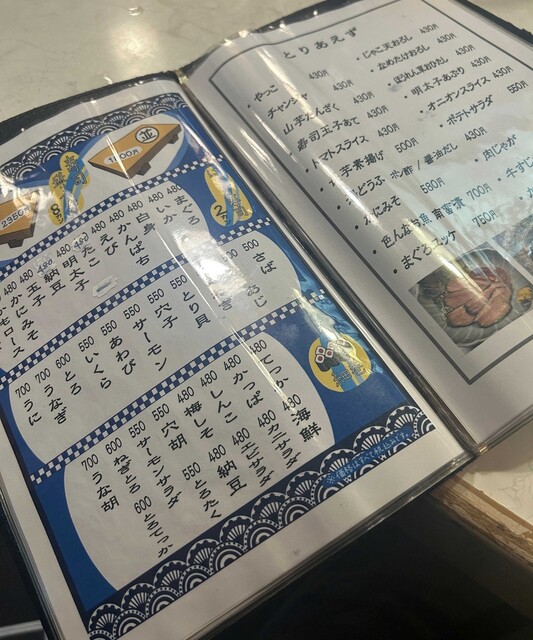 とりあえず
・やっこ 430円
チャンジャ 430円
山芋たんざく 430円
寿司玉子あて 430円
マトスライス 430円
芋素揚げ 500円
ポン酢 / 醤油だし 430円
かにみそ 580円
色んなお魚南蛮漬 700円
・まぐろユッケ 750円
・じゃこ天おろし 430円
・なめたけおろし 430円
・ほうれん草おひたし 430円
・明太子あぶり 430円
・オニオンスライス 430円
・ポテトサラダ 550円
・肉じゃが
・牛すじ
並
2350
まぐろ 480
いか 480
白身 480
かんぱち 480
えび 480
たこ 480
明太子 480
納豆 480
玉子 480
かにみそ 480
さば 500
あじ
とり貝 550
穴子 550
サーモン 550
あわび 550
いくら 550
とろ 600
うなぎ 700
うに 700
海鮮 430
てっか 480
かっぱ 480
しんこ 480
梅しそ 480
穴胡 550
サーモンサラダ 550
ねぎとろ 600
うな胡 700
カニサラダ 480
エビサラダ 480
納豆 480
とろたく 550
とろてっか 600